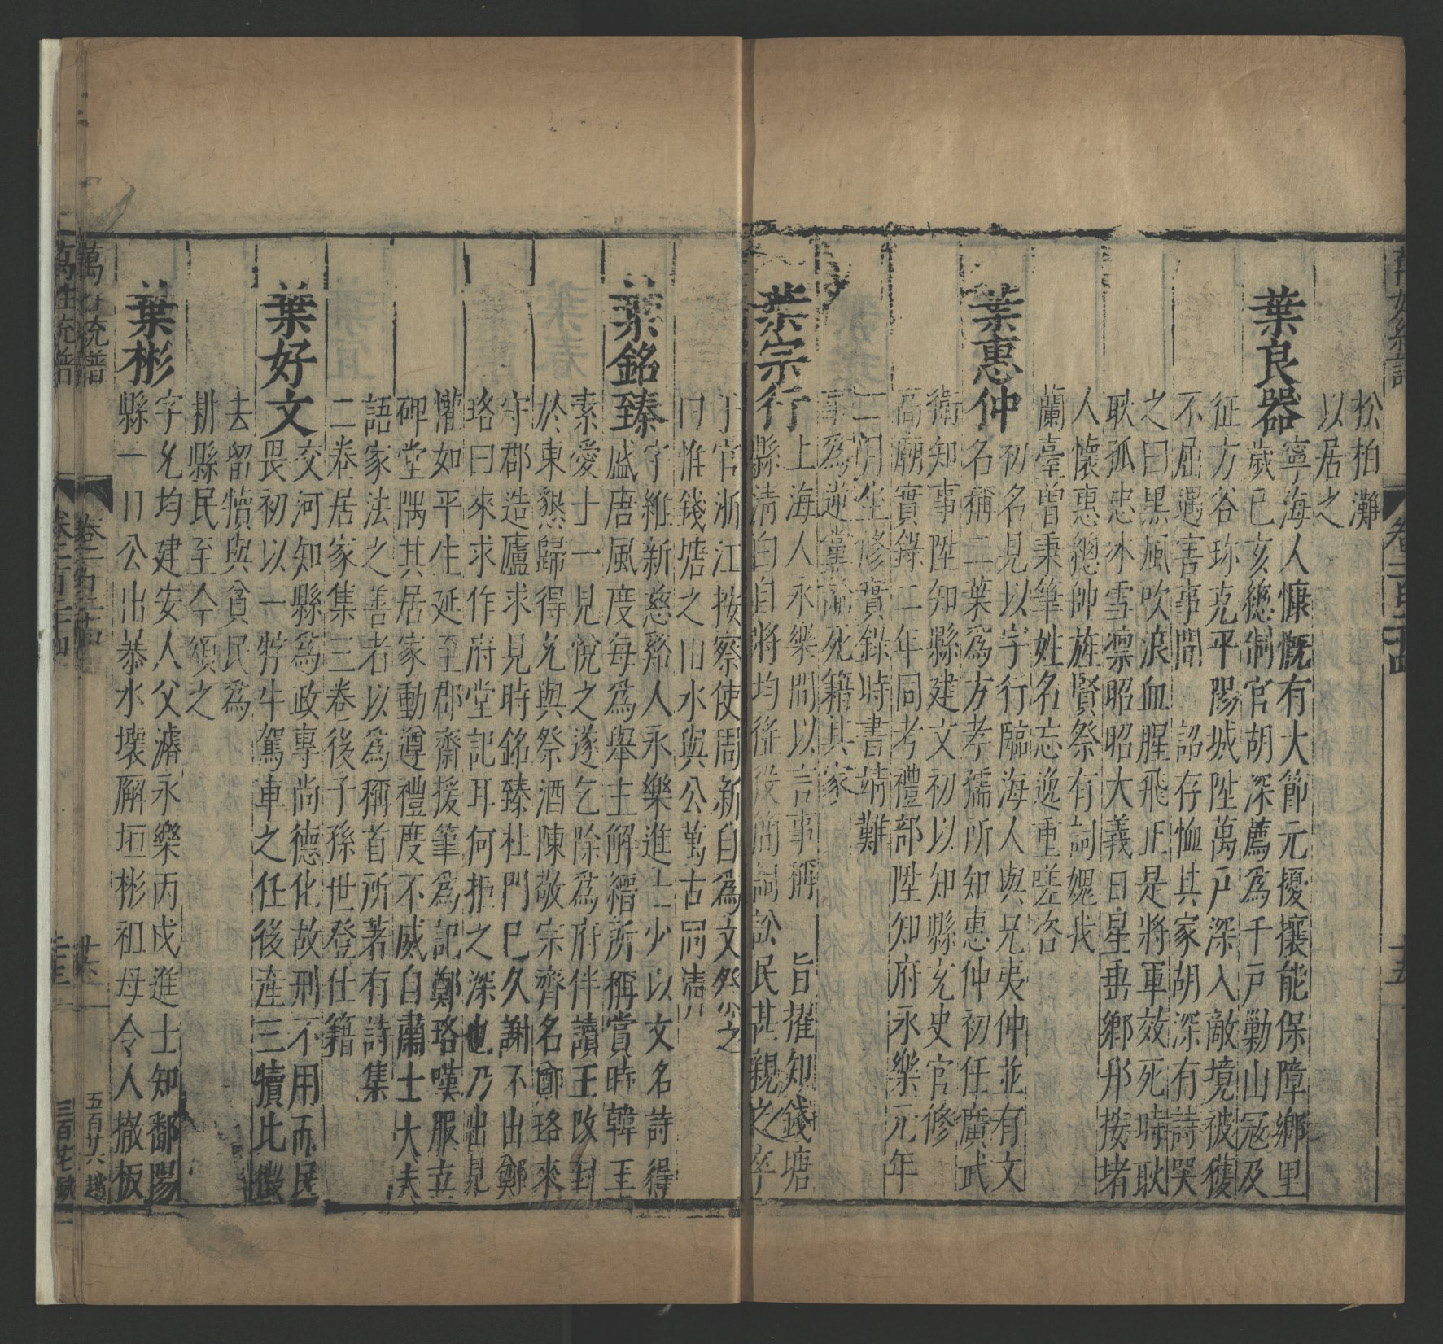 松柏灘
以居之
葉良器
寧海人慷慨有大節元擾攘能保障鄉里
歲己亥總制官胡深薦為千戶勦山冦及
征方谷珍克平陽城陞萬戶深入敵境被獲
不屈遇害事聞 詔存恤其家胡深有詩哭
之曰黑風吹浪血腥飛正是將軍效死時耿
耿孤忠冰雪凛昭昭大義日星垂鄉邦按堵
人懷惠總帥旌賢祭有詞媿我
蘭臺曾秉筆姓名忘逸重嗟咨
葉惠仲
初名見以字行臨海人與兄夷仲並有文
名稱二葉為方孝孺所知惠仲初任廣武
衛知事陞知縣建文初以知縣充史官修
高廟實錄二年同考禮部陞知府永樂元年
二月坐修實錄時書靖難
事為逆黨論死籍其家
葉宗行
上海人永樂間以言事稱 旨擢知錢塘
縣清白自將均徭役簡詞訟民甚親之卒
于官浙江按察使周新自為文祭之
曰惟錢塘之山水與公萬古同清
葉銘臻
字維新慈谿人永樂進士少以文名詩得
盛唐風度每為舉主解縉所稱賞時韓王
素愛士一見悅之遂乞除為府伴讀王改封
於東懇歸得允與祭酒陳敬宗齊名鄭珞來
守郡造廬求見時銘臻杜門已久謝不出鄭
珞曰來求作府堂記耳何拒之深也乃出見
懽如平生延至郡齋援筆為記鄭珞嘆服立
碑堂隅其居家動遵禮度不威自肅士大夫
語家法之善者以為稱首所著有詩集
二卷居家集三卷後子孫世登仕籍
葉好文
交河知縣為政專尚德化故刑不用而民
畏初以一牸牛駕車之任後產三犢比歸
去留犢與貧民為
耕縣民至今頌之
葉彬
字允均建安人父濬永樂丙戌進士知鄱陽
縣一日公出恭水壞廨垣彬祖母令人撤板
萬姓統譜
卷之一百二十四
葉
五百廿六